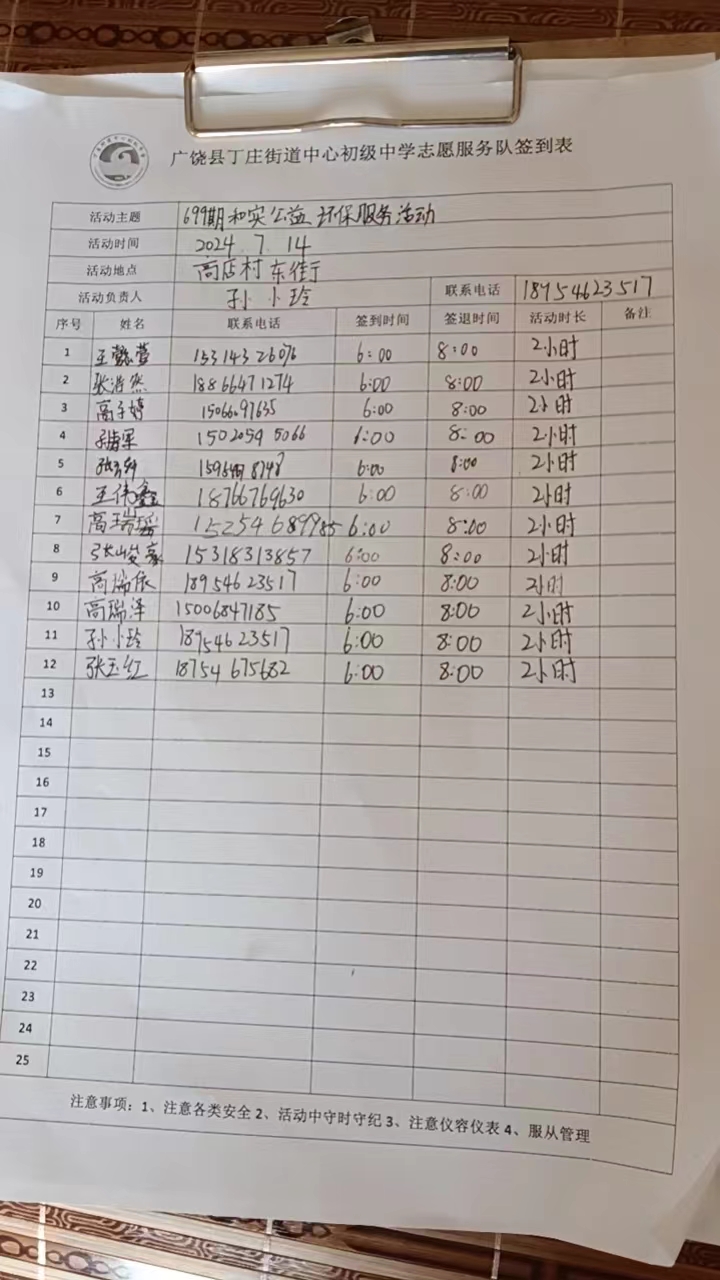 广饶县丁庄街道中心初级中学志愿服务队签到表
活动主题 699期和实公益环保服务活动
活动时间 2024 7 14
活动地点 高店村东街
活动负责人 孙小玲 联系电话 18954623517
序号 姓名 联系电话 签到时间 签退时间 活动时长 备注
1 王懿萱 15314326076 6:00 8:00 2小时
2 张浩然 18866471274 6:00 8:00 2小时
3 高子婷 15066097635 6:00 8:00 2小时
4 15020545066 6:00 8:00 2小时
5 6:00 8:00 2小时
6 王伟鑫 18766769630 6:00 8:00 2小时
7 高瑞瑶 15254689985 6:00 8:00 2小时
8 张峻豪 15318313857 6:00 8:00 2小时
9 高瑞依 18954623517 6:00 8:00 2小时
10 高瑞泽 15006847185 6:00 8:00 2小时
11 孙小玲 18954623517 6:00 8:00 2小时
12 张玉红 18754675682 6:00 8:00 2小时
13
14
15
16
17
18
19
20
21
22
23
24
25
注意事项：1、注意各类安全 2、活动中守时守纪 3、注意仪容仪表 4、服从管理